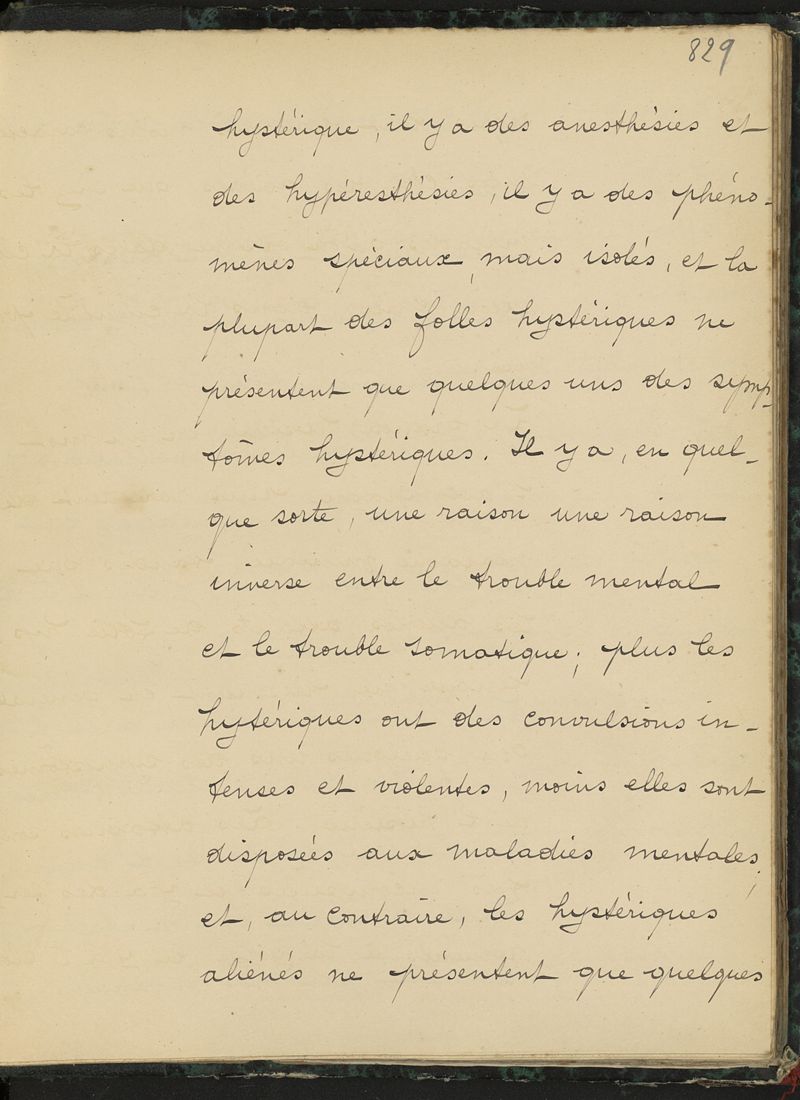 829
hystérique, il y a des anesthésies et
des hypéresthésies, il y a des phéno-
mènes spéciaux, mais isolés, et la
plupart des folles hystériques ne
présentent que quelques uns des symp-
tômes hystériques. Il y a, en quel-
que sorte, une raison une raison
inverse entre le trouble mental
et le trouble somatique; plus les
hytériques ont des convulsions in-
tenses et violentes, moins elles sont
disposées aux maladies mentales;
et, au contraire, les hystériques
aliénés ne présentent que quelques